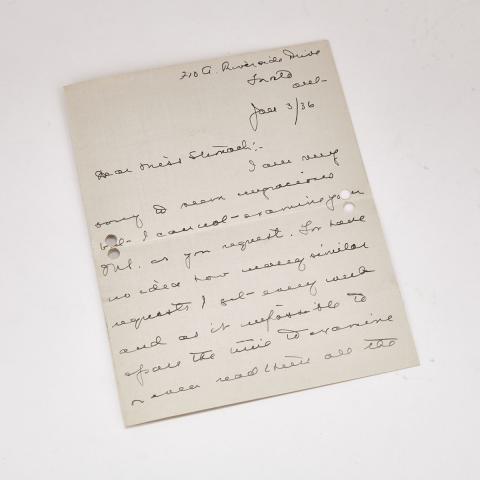 210 A. Riverside Drive
Toronto
Ont-
Jan 3/36
Dear Miss :-
I am very
sorry to seem ungracious
but I cannot examine your
as you request. You have
no idea how many similar
requests I get every week
and as it impossible to
spare the time to examine
or even read them all the